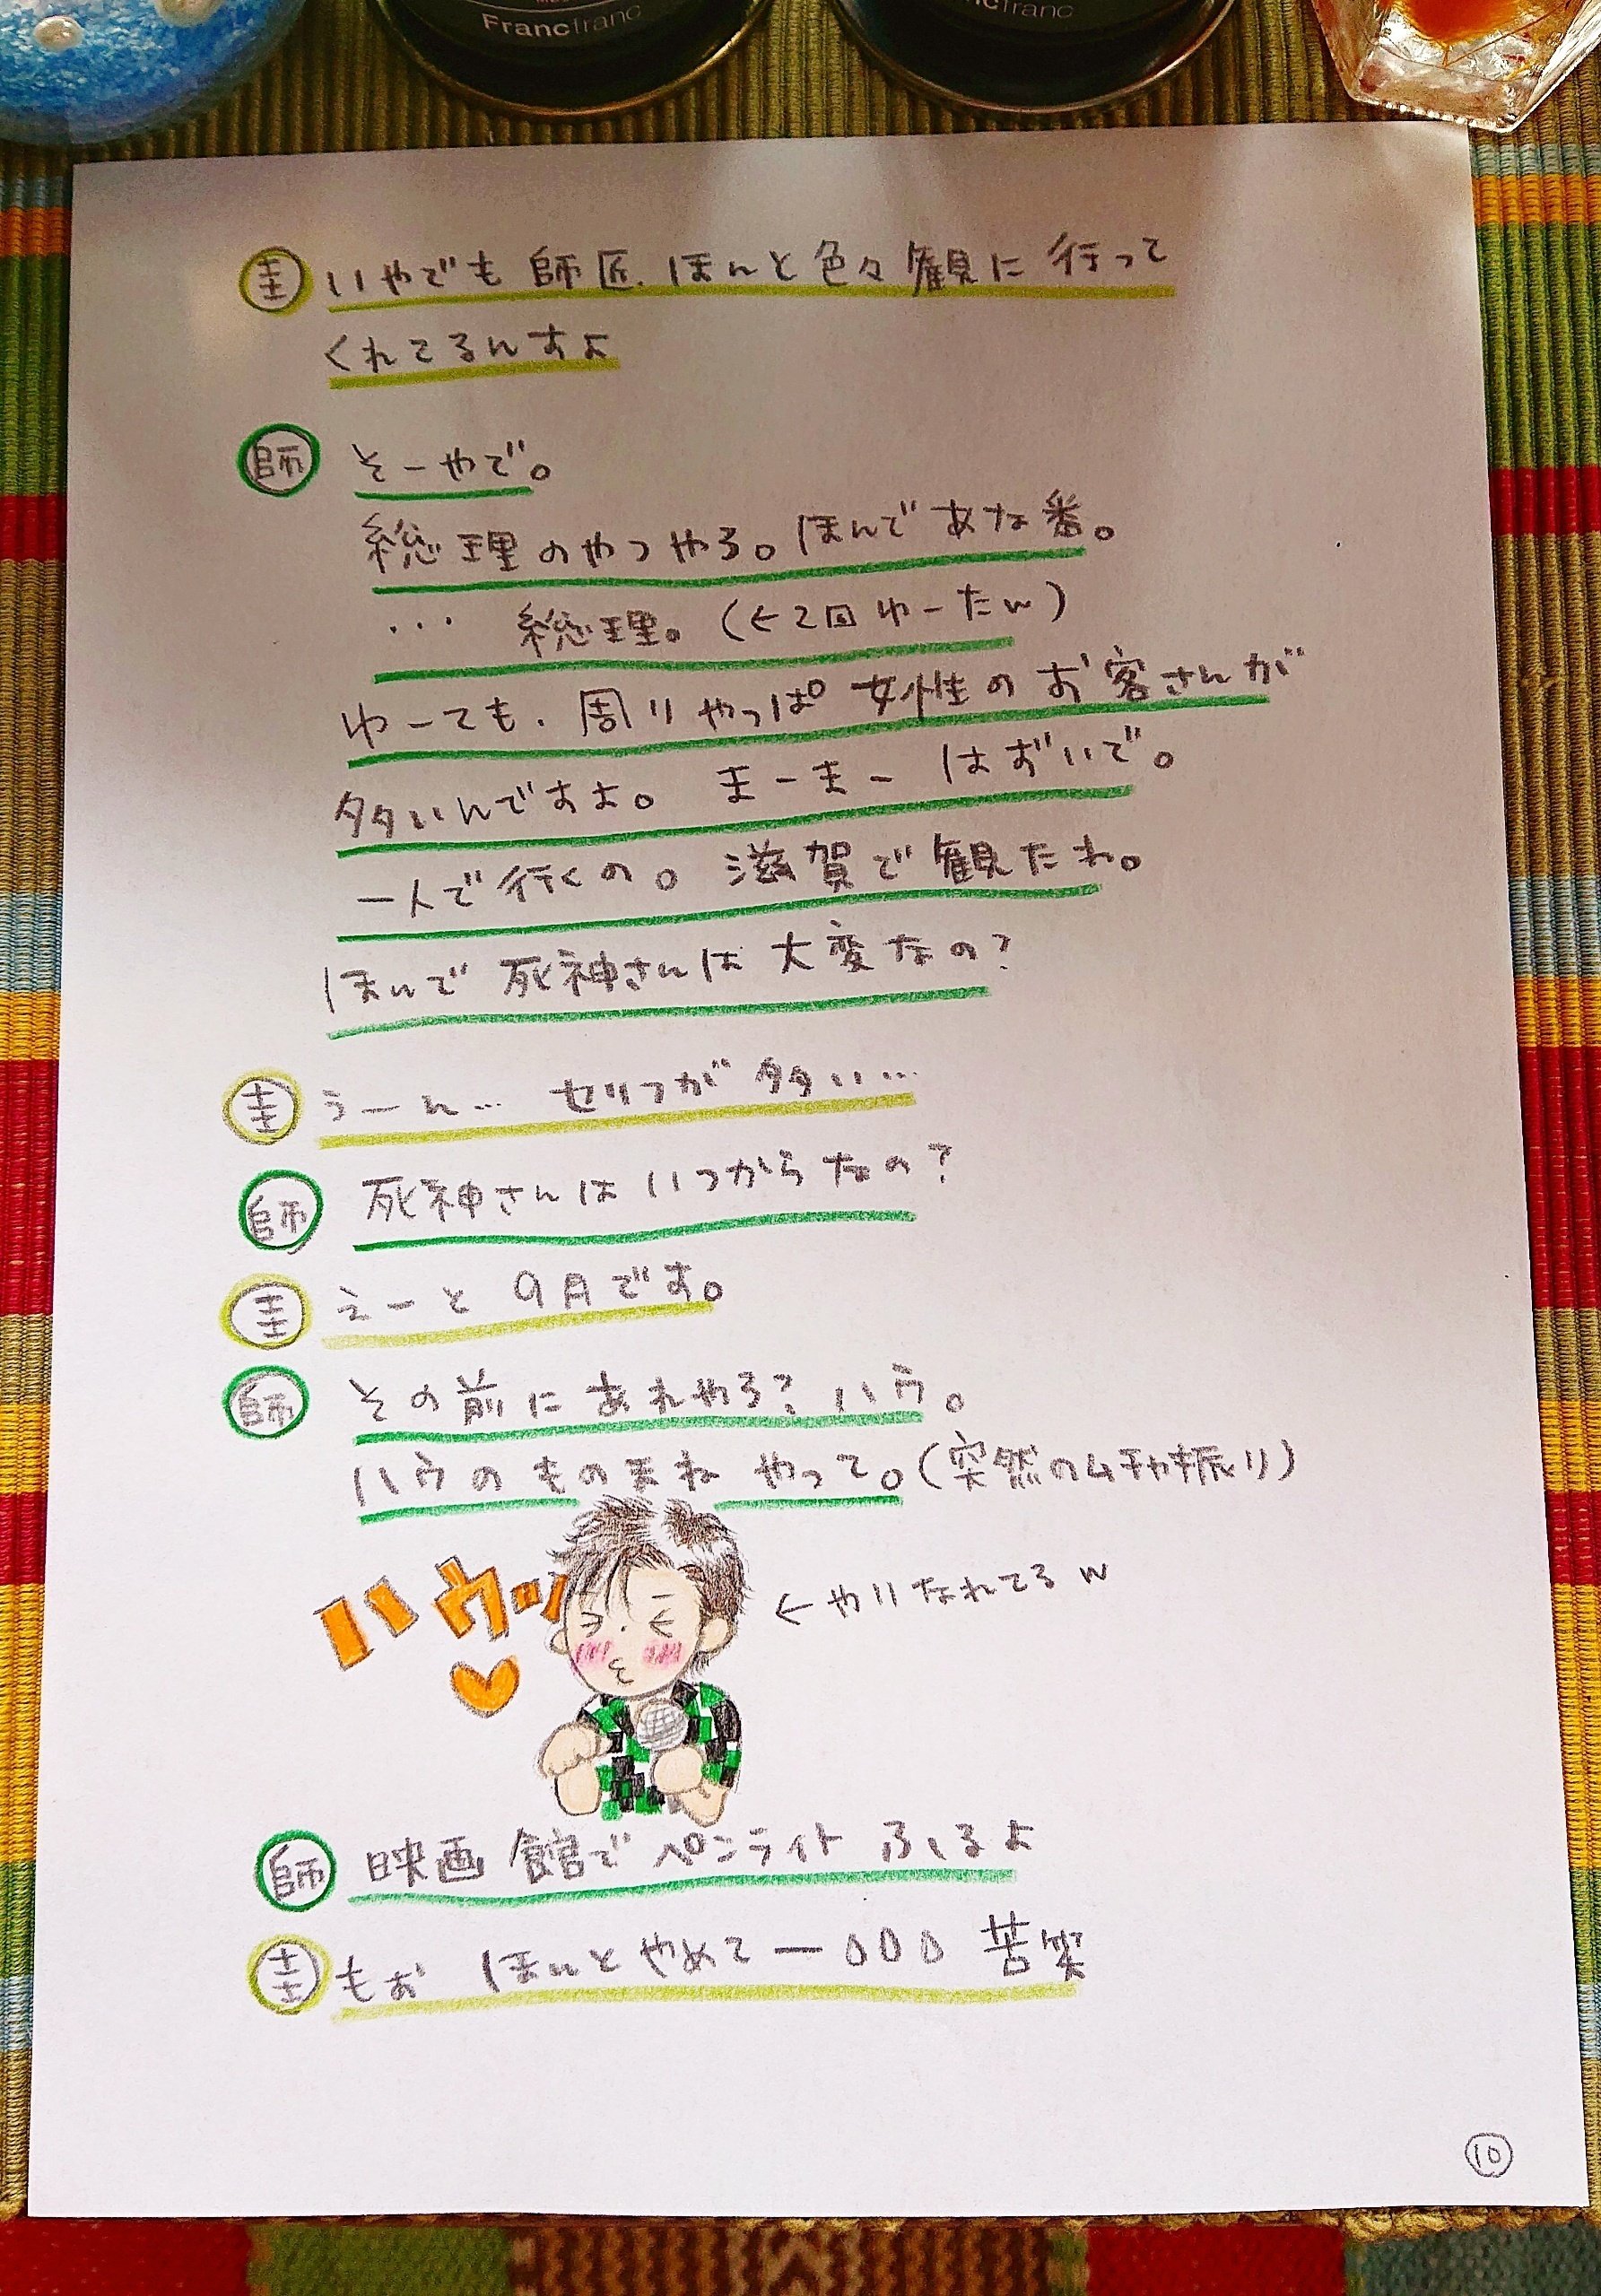 Francfranc
ncfranc
圭 いやでも 師匠、ほんと色々観に行って
くれてるんすよ
師 そーやで。
総理のやつやろ。ほんであな番。
… 総理。(←2回ゆーたw)
ゆーても、周りやっぱ女性のお客さんが
多いんですよ。 まーまー はずいで。
一人で行くの。滋賀で観たわ。
ほんで 死神さんは 大変なの?
圭 うーん… セリフが多い…
師 死神さんはいつからなの?
圭 えーと 9月です。
師 その前にあれやろ? ハウ。
ハウのものまね やって。(突然のムチャ振り)
ハウッ
←やりなれてるw
師 映画館でペンライトふるよ
圭 もお ほんとやめてー 苦笑
10